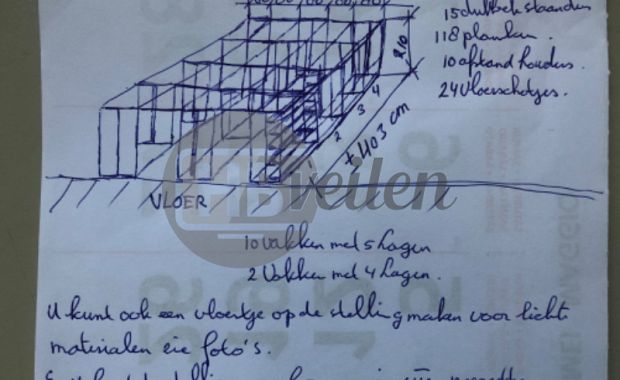 15 dubbele staanders
118 planken.
10 afstand houders.
24 Vloerschotjes.
210
1 2 3 4
± 403 cm
VLOER
veilen
10 vakken met 5 lagen
2 Vakken met 4 lagen.
U kunt ook een vloertje op de stelling maken voor lichte
materialen zie foto's.